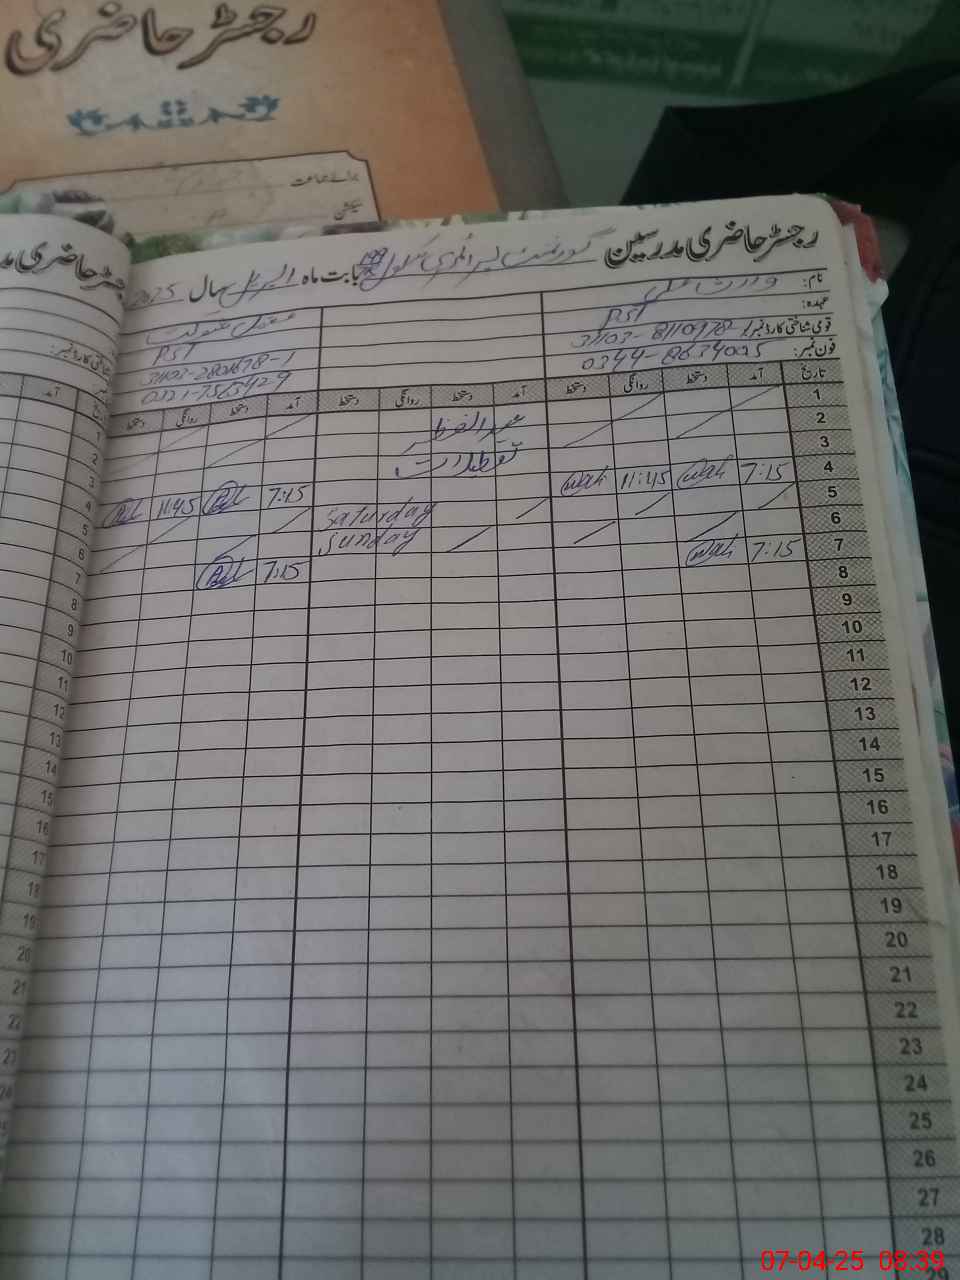 رجسٹر حاضری
برائے جماعت
سیکشن
رجسٹر حاضری مدرسین گورنمنٹ پرائمری سکول بابت ماہ اپریل سال 2025
نام:
عہدہ: PST PST
قومی شناختی کارڈ نمبر:
فون نمبر: 0344-8634005 0321-7565429
تاریخ آمد دستخط روانگی دستخط آمد دستخط روانگی دستخط آمد دستخط روانگی دستخط
1
2 عید الفطر
3 تعطیلات
4 7:15 Wali 11:45 Wali 7:15 11:45
5 Saturday
6 Sunday
7 7:15 Wali 7:15
8
9
10
11
12
13
14
15
16
17
18
19
20
21
22
23
24
25
26
27
28
29
رجسٹر حاضری
شناختی کارڈ نمبر:
آمد
1
2
3
4
5
6
7
8
9
10
11
12
13
14
15
16
17
18
19
20
21
22
23
24
07-04-25 08:39